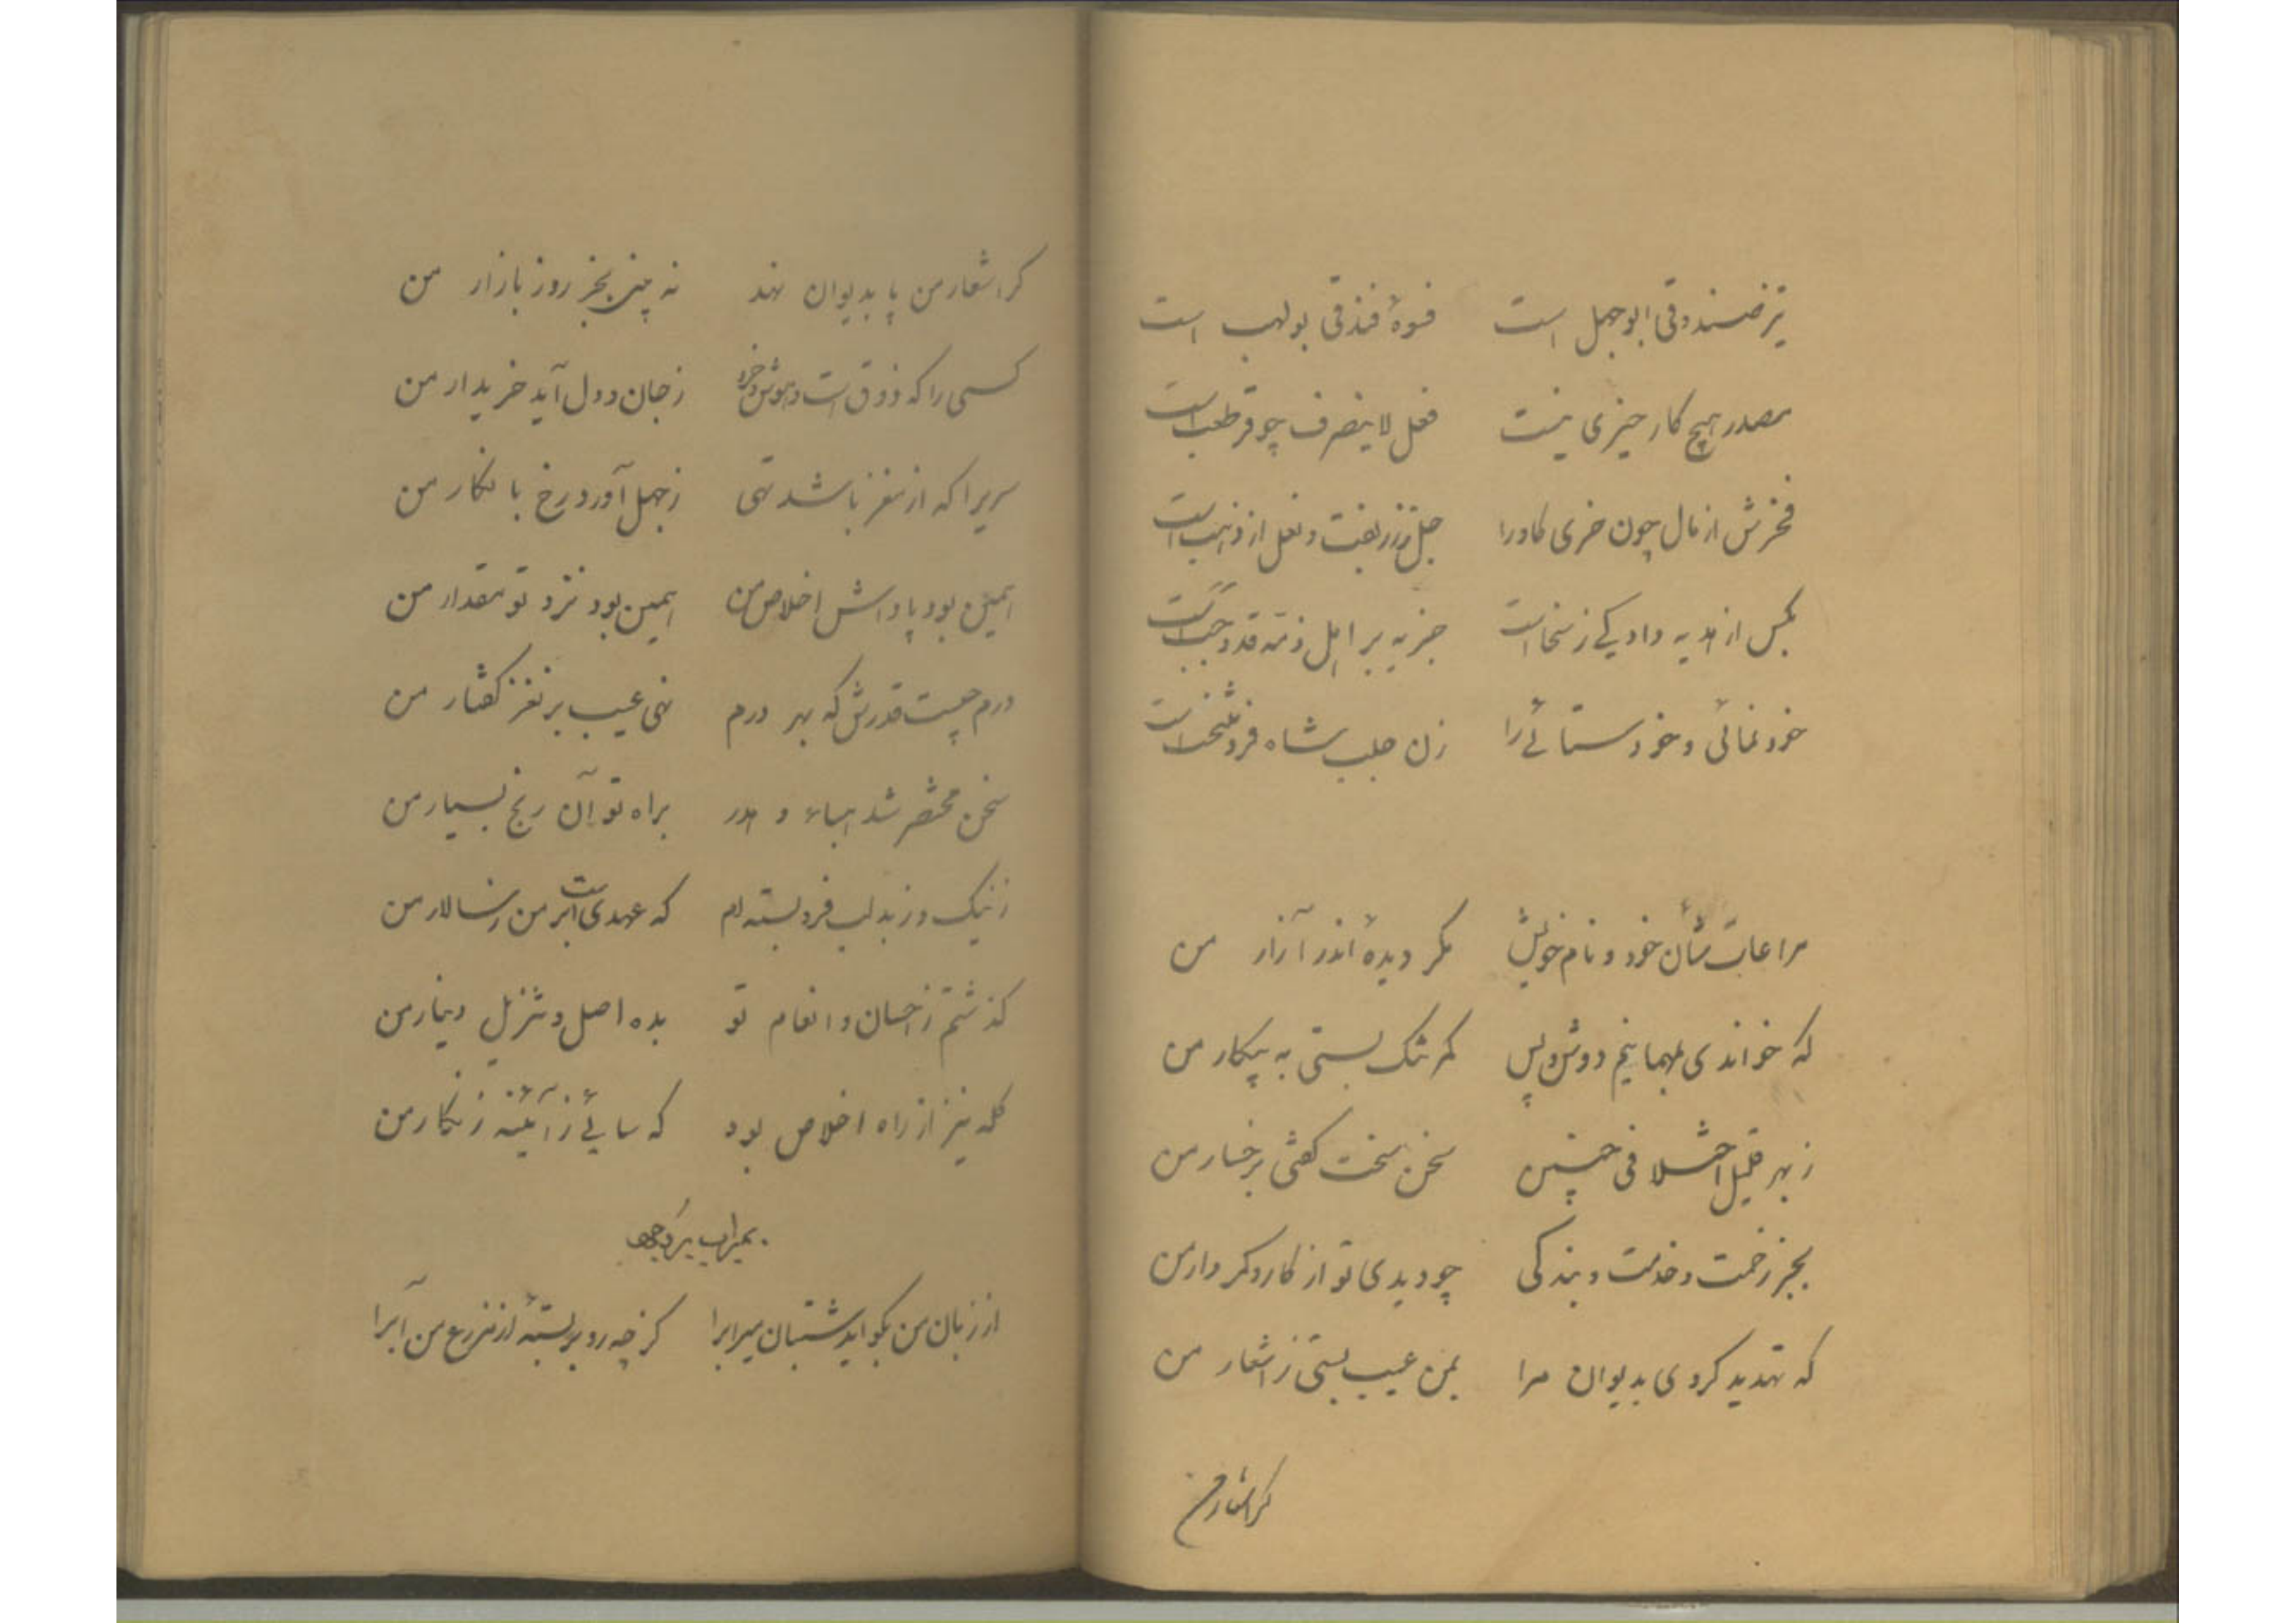 تیز صندوقی ابوجهل است فسوهٔ فندقی بولهب است
مصدر هیچ کار چیزی نیست فعل لاینصرف چو قرطب است
فخرش از مال چون خری کاورا جل ز زربفت و نعل از ذهب است
بکس از هدیه داد یکی ز سخا است جزیه بر اهل ذمه قد وجب است
خود نمائی و خود ستائی را زن جلب شاه فرد منتخب است
مراعات شأن خود و نام خویش مکر دیدهٔ اندر آزار من
که خواندی بمهمانیم دوش و پس کمر تنک بستی به پیکار من
ز بهر قلیل احشلا فی خسیس سخن سخت کفتی برخسار من
بجز زحمت و خدمت و بندکی چو دیدی تو از کار و کردار من
که تهدید کردی بدیوان مرا بمن عیب بستی ز اشعار من
کر اشعار من
کر اشعار من پا بدیوان نهد نه چینی بجز روز بازار من
کسی را که ذوق است و هوش و خرد ز جان و دل آید خریدار من
سریرا که از مغز باشد تهی ز جهل آورد رخ با نکار من
همین بود پاداش اخلاص من همین بود نزد تو مقدار من
درم چیست قدرش که بهر درم نهی عیب بر نغز کفتار من
سخن مختصر شد هباء و هدر براه تو آن رنج بسیار من
ز نیک و ز بد لب فرو بسته‌ام که عهدی است بر من ز سالار من
کذشتم ز احسان و انعام تو بده اصل و تنزیل دینار من
کله نیز از راه اخلاص بود که سائی ز آئینه زنکار من
بمیراب یزدجرد
از زبان من بکوئید شتبان میرابرا کز چه رو بر بستهٔ از مزرع من آبرا